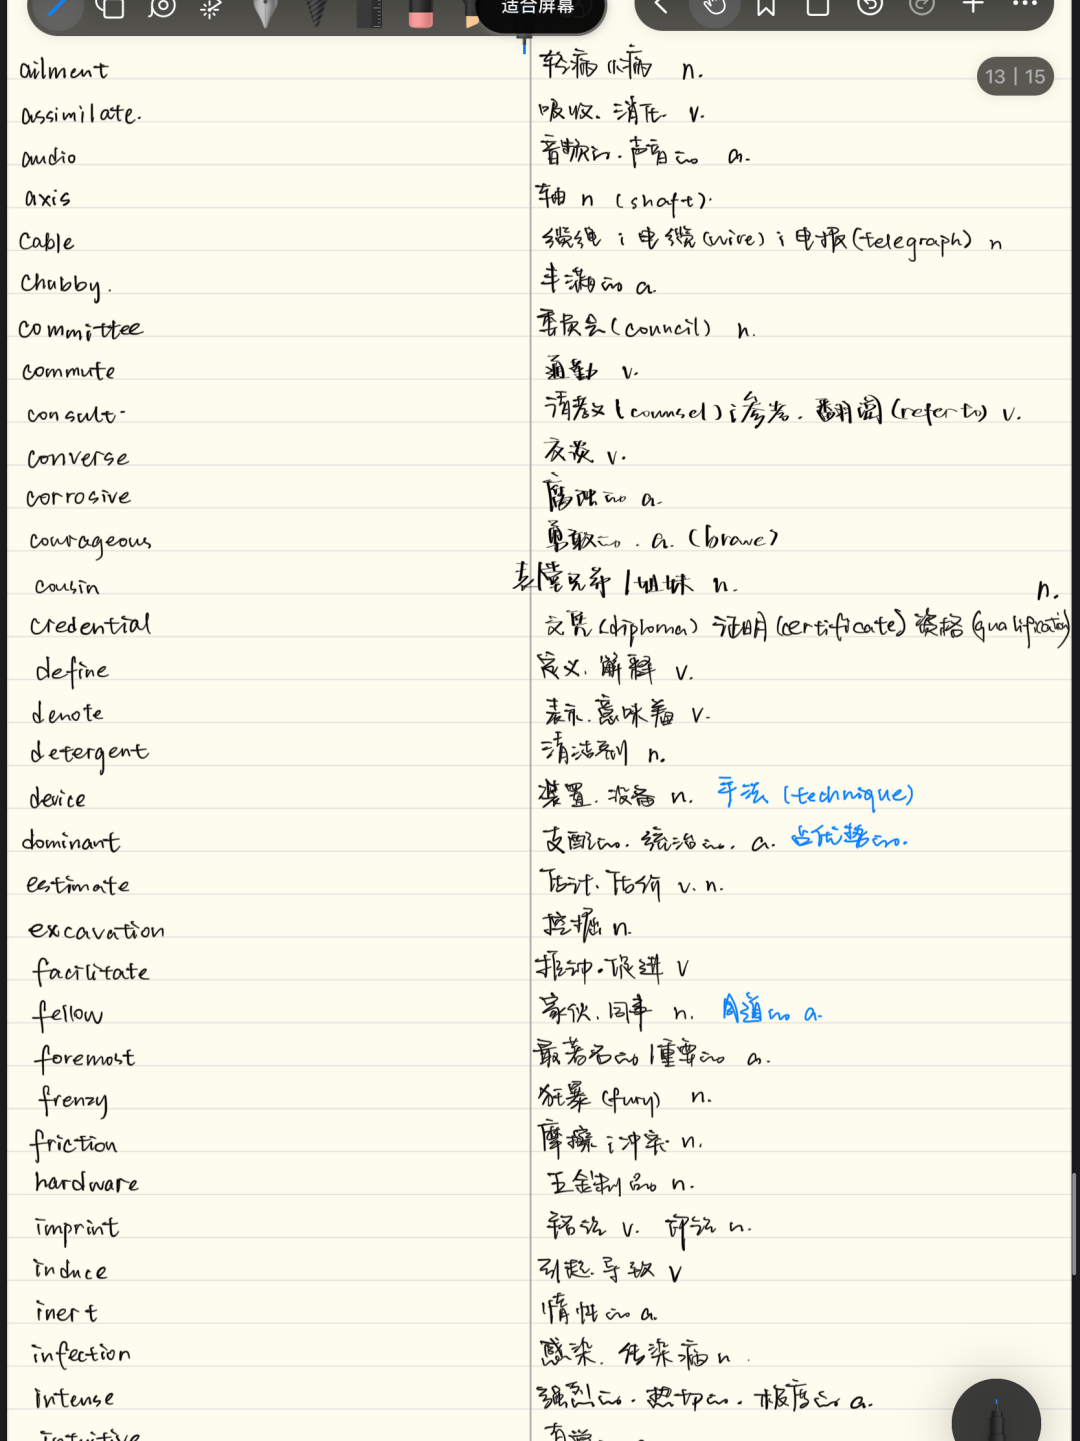 适合屏幕
13 | 15
ailment 轻病 小病 n.
assimilate. 吸收、消化 v.
audio 音频的、声音的 a.
axis 轴 n (shaft).
Cable 缆绳；电缆(wire)；电报(telegraph) n
Chubby. 丰满的 a.
committee 委员会(council) n.
commute 通勤 v.
consult 请教(counsel)；参考、翻阅(refer to) v.
converse 交谈 v.
corrosive 腐蚀的 a.
courageous 勇敢的. a. (brave)
cousin 表/堂兄弟/姐妹 n.
credential 文凭(diploma) 证明(certificate) 资格(qualification) n.
define 定义、解释 v.
denote 表示、意味着 v.
detergent 清洁剂 n.
device 装置、设备 n. 手法 (technique)
dominant 支配的、统治的. a. 占优势的.
estimate 估计、估价 v. n.
excavation 挖掘 n.
facilitate 推动、促进 v
fellow 家伙、同事 n. 同道的 a.
foremost 最著名的/重要的 a.
frenzy 狂暴 (fury) n.
friction 摩擦；冲突 n.
hardware 五金制品 n.
imprint 铭记 v. 印记 n.
induce 引起、导致 v
inert 惰性的 a.
infection 感染、传染病 n.
intense 强烈的、热切的、极度的 a.
intuitive